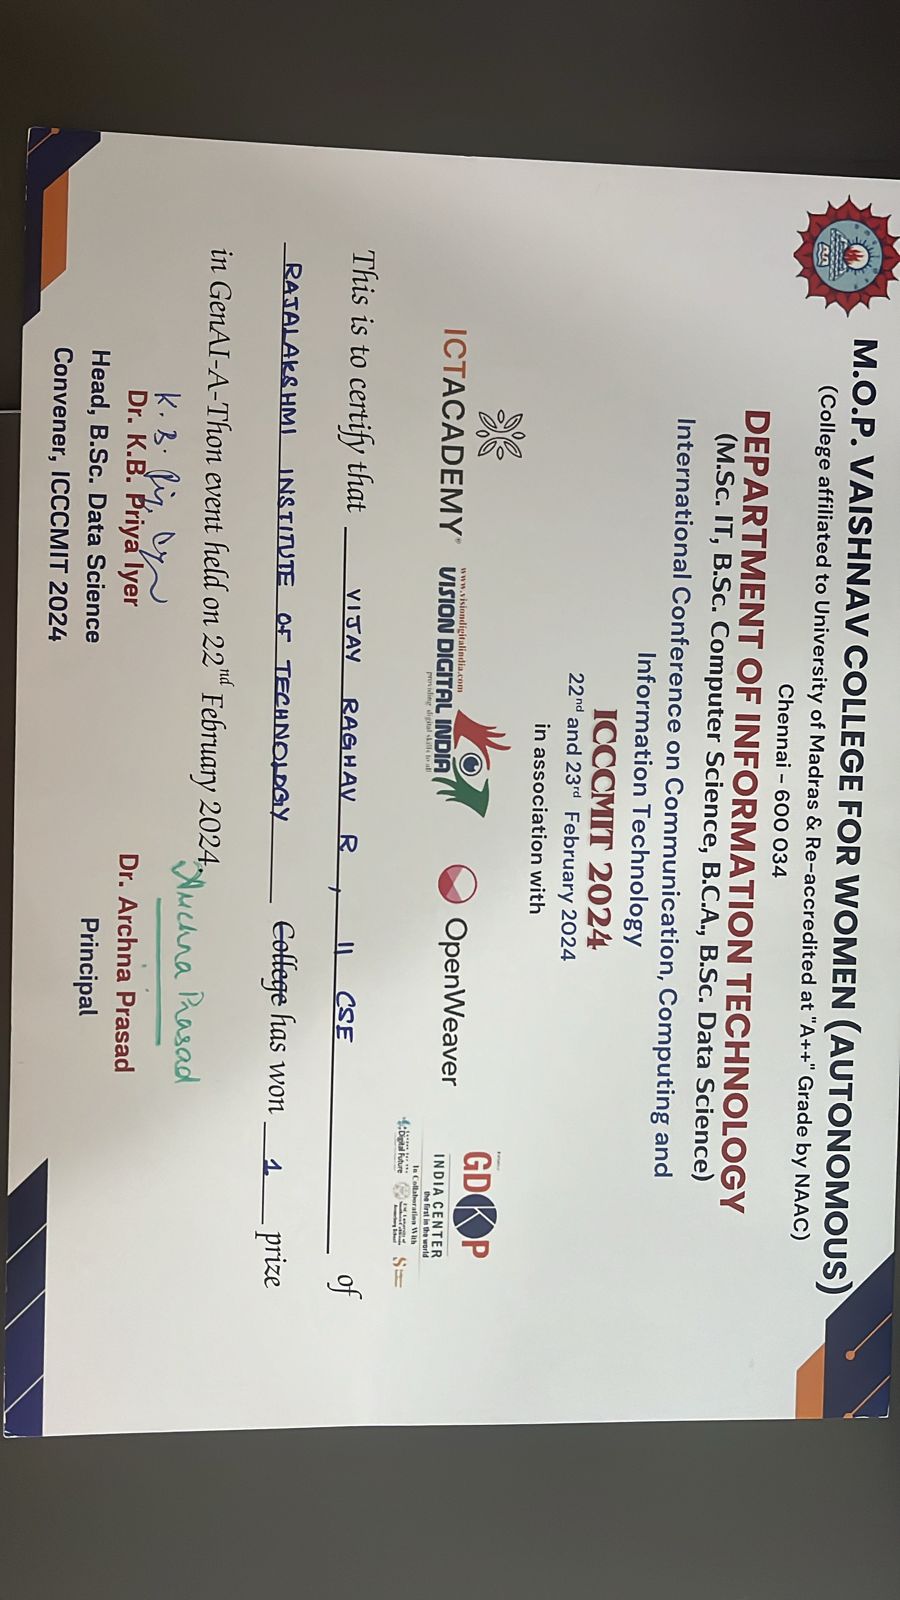 M.O.P. VAISHNAV COLLEGE FOR WOMEN (AUTONOMOUS)
(College affiliated to University of Madras & Re-accredited at "A++" Grade by NAAC)
Chennai – 600 034
DEPARTMENT OF INFORMATION TECHNOLOGY
(M.Sc. IT, B.Sc. Computer Science, B.C.A., B.Sc. Data Science)
International Conference on Communication, Computing and
Information Technology
ICCCMIT 2024
22nd and 23rd February 2024
in association with
ICTACADEMY
www.visiondigitalindia.com
VISION DIGITAL INDIA
providing digital skills to all
OpenWeaver
GDKP
INDIA CENTER
the first in the world
In Collaboration With
Digital Future
This is to certify that VIJAY RAGHAV R, II CSE of
RAJALAKSHMI INSTITUTE OF TECHNOLOGY College has won 1 prize
in GenAI-A-Thon event held on 22nd February 2024.
Archna Prasad
Dr. K.B. Priya Iyer
Head, B.Sc. Data Science
Convener, ICCCMIT 2024
Dr. Archna Prasad
Principal